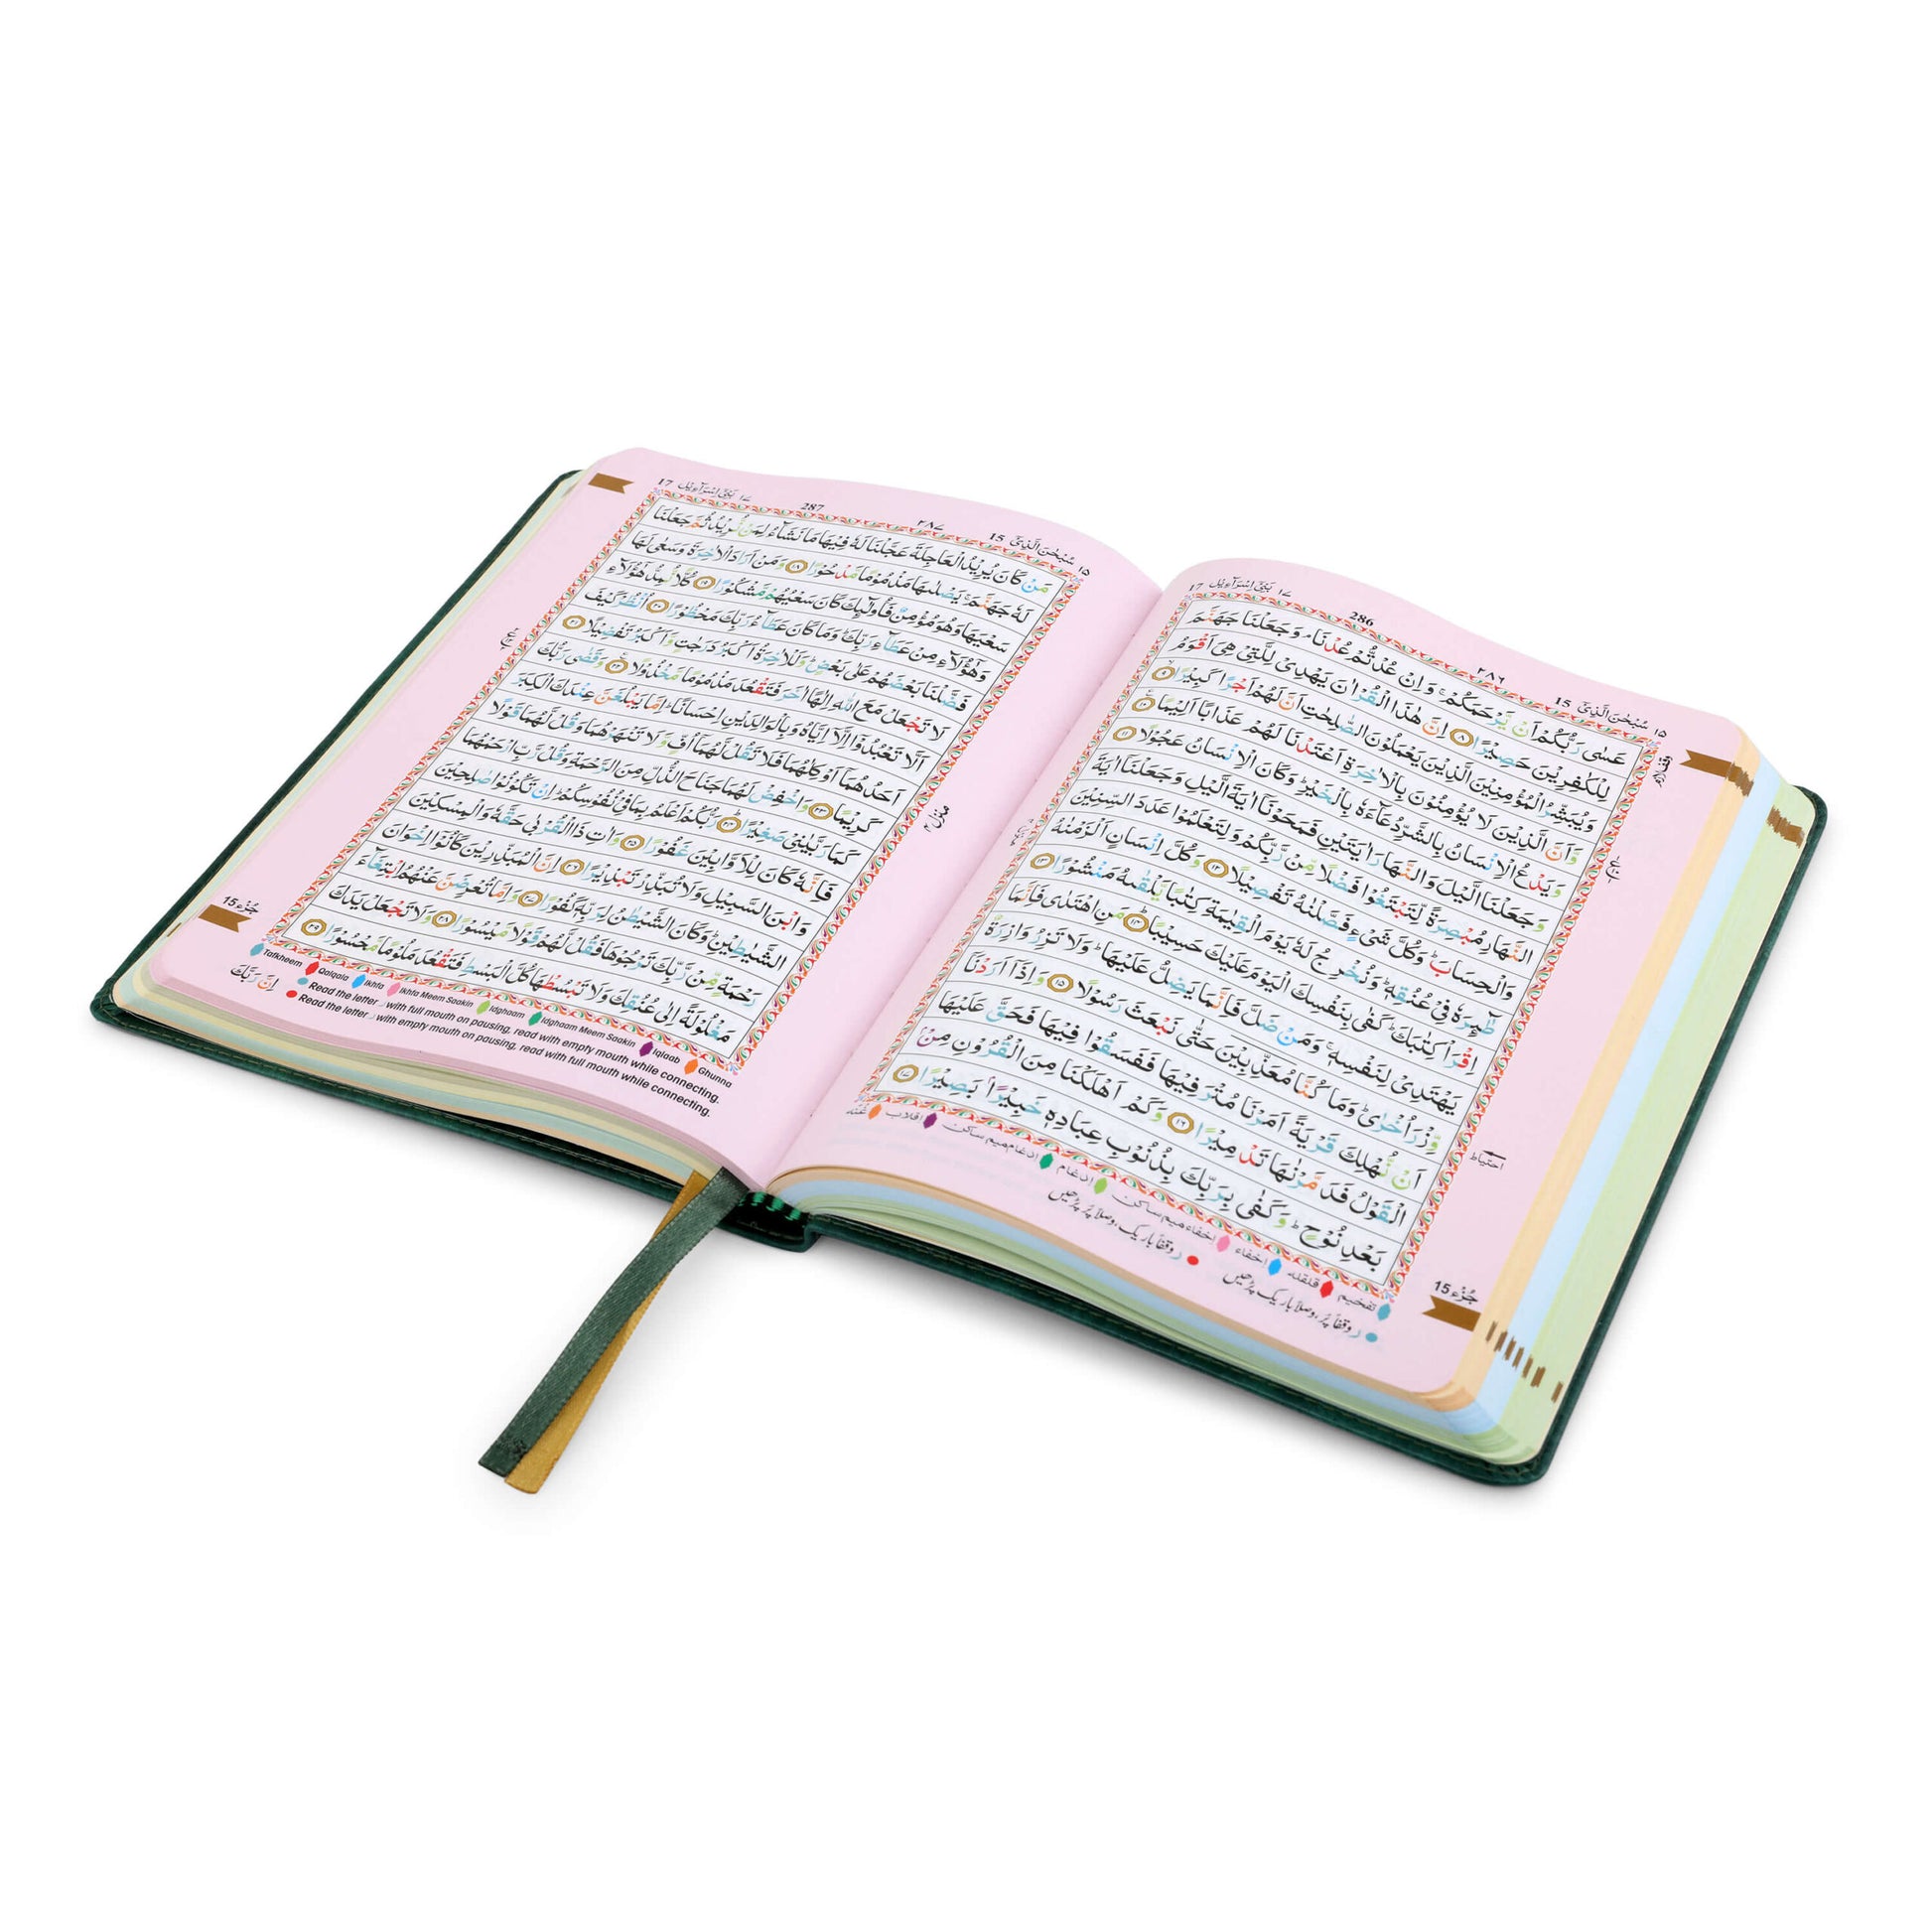 بَنِيْٓ اِسْرَآءِيْل ۱۷ 17
286 ۲۸۶
سُبْحٰنَ الَّذِيْٓ ۱۵ 15
عَسٰى رَبُّكُمْ اَنْ يَّرْحَمَكُمْ ۚ وَاِنْ عُدْتُّمْ عُدْنَا ۘ وَجَعَلْنَا جَهَنَّمَ
لِلْكٰفِرِيْنَ حَصِيْرًا ۝۸ اِنَّ هٰذَا الْقُرْاٰنَ يَهْدِيْ لِلَّتِيْ هِيَ اَقْوَمُ
وَيُبَشِّرُ الْمُؤْمِنِيْنَ الَّذِيْنَ يَعْمَلُوْنَ الصّٰلِحٰتِ اَنَّ لَهُمْ اَجْرًا كَبِيْرًا ۝۹
وَّاَنَّ الَّذِيْنَ لَا يُؤْمِنُوْنَ بِالْاٰخِرَةِ اَعْتَدْنَا لَهُمْ عَذَابًا اَلِيْمًا ۝۱۰
وَيَدْعُ الْاِنْسَانُ بِالشَّرِّ دُعَآءَهٗ بِالْخَيْرِ ؕ وَكَانَ الْاِنْسَانُ عَجُوْلًا ۝۱۱
وَجَعَلْنَا الَّيْلَ وَالنَّهَارَ اٰيَتَيْنِ فَمَحَوْنَآ اٰيَةَ الَّيْلِ وَجَعَلْنَآ اٰيَةَ
النَّهَارِ مُبْصِرَةً لِّتَبْتَغُوْا فَضْلًا مِّنْ رَّبِّكُمْ وَلِتَعْلَمُوْا عَدَدَ السِّنِيْنَ
وَالْحِسَابَ ؕ وَكُلَّ شَيْءٍ فَصَّلْنٰهُ تَفْصِيْلًا ۝۱۲ وَكُلَّ اِنْسَانٍ اَلْزَمْنٰهُ
طٰٓئِرَهٗ فِيْ عُنُقِهٖ ؕ وَنُخْرِجُ لَهٗ يَوْمَ الْقِيٰمَةِ كِتٰبًا يَّلْقٰىهُ مَنْشُوْرًا ۝۱۳
اِقْرَاْ كِتٰبَكَ ؕ كَفٰى بِنَفْسِكَ الْيَوْمَ عَلَيْكَ حَسِيْبًا ۝۱۴ مَنِ اهْتَدٰى فَاِنَّمَا
يَهْتَدِيْ لِنَفْسِهٖ ۚ وَمَنْ ضَلَّ فَاِنَّمَا يَضِلُّ عَلَيْهَا ؕ وَلَا تَزِرُ وَازِرَةٌ
وِّزْرَ اُخْرٰى ؕ وَمَا كُنَّا مُعَذِّبِيْنَ حَتّٰى نَبْعَثَ رَسُوْلًا ۝۱۵ وَاِذَآ اَرَدْنَآ
اَنْ نُّهْلِكَ قَرْيَةً اَمَرْنَا مُتْرَفِيْهَا فَفَسَقُوْا فِيْهَا فَحَقَّ عَلَيْهَا
الْقَوْلُ فَدَمَّرْنٰهَا تَدْمِيْرًا ۝۱۶ وَكَمْ اَهْلَكْنَا مِنَ الْقُرُوْنِ مِنْۢ
بَعْدِ نُوْحٍ ؕ وَكَفٰى بِرَبِّكَ بِذُنُوْبِ عِبَادِهٖ خَبِيْرًۢا بَصِيْرًا ۝۱۷
احتیاط
جُزْء 15
تفخیم قلقلہ اخفاء اخفاء میم ساکن ادغام ادغام میم ساکن اقلاب غُنّہ
ر وقفاً پُر، وصلاً باریک پڑھیں ر وقفاً باریک، وصلاً پُر پڑھیں
بَنِيْٓ اِسْرَآءِيْل ۱۷ 17
287 ۲۸۷
سُبْحٰنَ الَّذِيْٓ ۱۵ 15
مَنْ كَانَ يُرِيْدُ الْعَاجِلَةَ عَجَّلْنَا لَهٗ فِيْهَا مَا نَشَآءُ لِمَنْ نُّرِيْدُ ثُمَّ جَعَلْنَا
لَهٗ جَهَنَّمَ ۚ يَصْلٰىهَا مَذْمُوْمًا مَّدْحُوْرًا ۝۱۸ وَمَنْ اَرَادَ الْاٰخِرَةَ وَسَعٰى لَهَا
سَعْيَهَا وَهُوَ مُؤْمِنٌ فَاُولٰٓئِكَ كَانَ سَعْيُهُمْ مَّشْكُوْرًا ۝۱۹ كُلًّا نُّمِدُّ هٰٓؤُلَآءِ
وَهٰٓؤُلَآءِ مِنْ عَطَآءِ رَبِّكَ ؕ وَمَا كَانَ عَطَآءُ رَبِّكَ مَحْظُوْرًا ۝۲۰ اُنْظُرْ كَيْفَ
فَضَّلْنَا بَعْضَهُمْ عَلٰى بَعْضٍ ؕ وَلَلْاٰخِرَةُ اَكْبَرُ دَرَجٰتٍ وَّاَكْبَرُ تَفْضِيْلًا ۝۲۱
لَا تَجْعَلْ مَعَ اللّٰهِ اِلٰهًا اٰخَرَ فَتَقْعُدَ مَذْمُوْمًا مَّخْذُوْلًا ۝۲۲ وَقَضٰى رَبُّكَ
اَلَّا تَعْبُدُوْٓا اِلَّآ اِيَّاهُ وَبِالْوَالِدَيْنِ اِحْسَانًا ؕ اِمَّا يَبْلُغَنَّ عِنْدَكَ الْكِبَرَ
اَحَدُهُمَآ اَوْ كِلٰهُمَا فَلَا تَقُلْ لَّهُمَآ اُفٍّ وَّلَا تَنْهَرْهُمَا وَقُلْ لَّهُمَا قَوْلًا
كَرِيْمًا ۝۲۳ وَاخْفِضْ لَهُمَا جَنَاحَ الذُّلِّ مِنَ الرَّحْمَةِ وَقُلْ رَّبِّ ارْحَمْهُمَا
كَمَا رَبَّيٰنِيْ صَغِيْرًا ۝۲۴ رَبُّكُمْ اَعْلَمُ بِمَا فِيْ نُفُوْسِكُمْ ؕ اِنْ تَكُوْنُوْا صٰلِحِيْنَ
فَاِنَّهٗ كَانَ لِلْاَوَّابِيْنَ غَفُوْرًا ۝۲۵ وَاٰتِ ذَا الْقُرْبٰى حَقَّهٗ وَالْمِسْكِيْنَ
وَابْنَ السَّبِيْلِ وَلَا تُبَذِّرْ تَبْذِيْرًا ۝۲۶ اِنَّ الْمُبَذِّرِيْنَ كَانُوْٓا اِخْوَانَ
الشَّيٰطِيْنِ ؕ وَكَانَ الشَّيْطٰنُ لِرَبِّهٖ كَفُوْرًا ۝۲۷ وَاِمَّا تُعْرِضَنَّ عَنْهُمُ ابْتِغَآءَ
رَحْمَةٍ مِّنْ رَّبِّكَ تَرْجُوْهَا فَقُلْ لَّهُمْ قَوْلًا مَّيْسُوْرًا ۝۲۸ وَلَا تَجْعَلْ يَدَكَ
مَغْلُوْلَةً اِلٰى عُنُقِكَ وَلَا تَبْسُطْهَا كُلَّ الْبَسْطِ فَتَقْعُدَ مَلُوْمًا مَّحْسُوْرًا ۝۲۹
منزل ۴
جُزْء 15
Tafkheem Qalqala Ikhfa Ikhfa Meem Saakin Idghaam Idghaam Meem Saakin Iqlaab Ghunna
Read the letter ر with full mouth on pausing, read with empty mouth while connecting.
Read the letter ر with empty mouth on pausing, read with full mouth while connecting.
اِنَّ رَبَّكَ